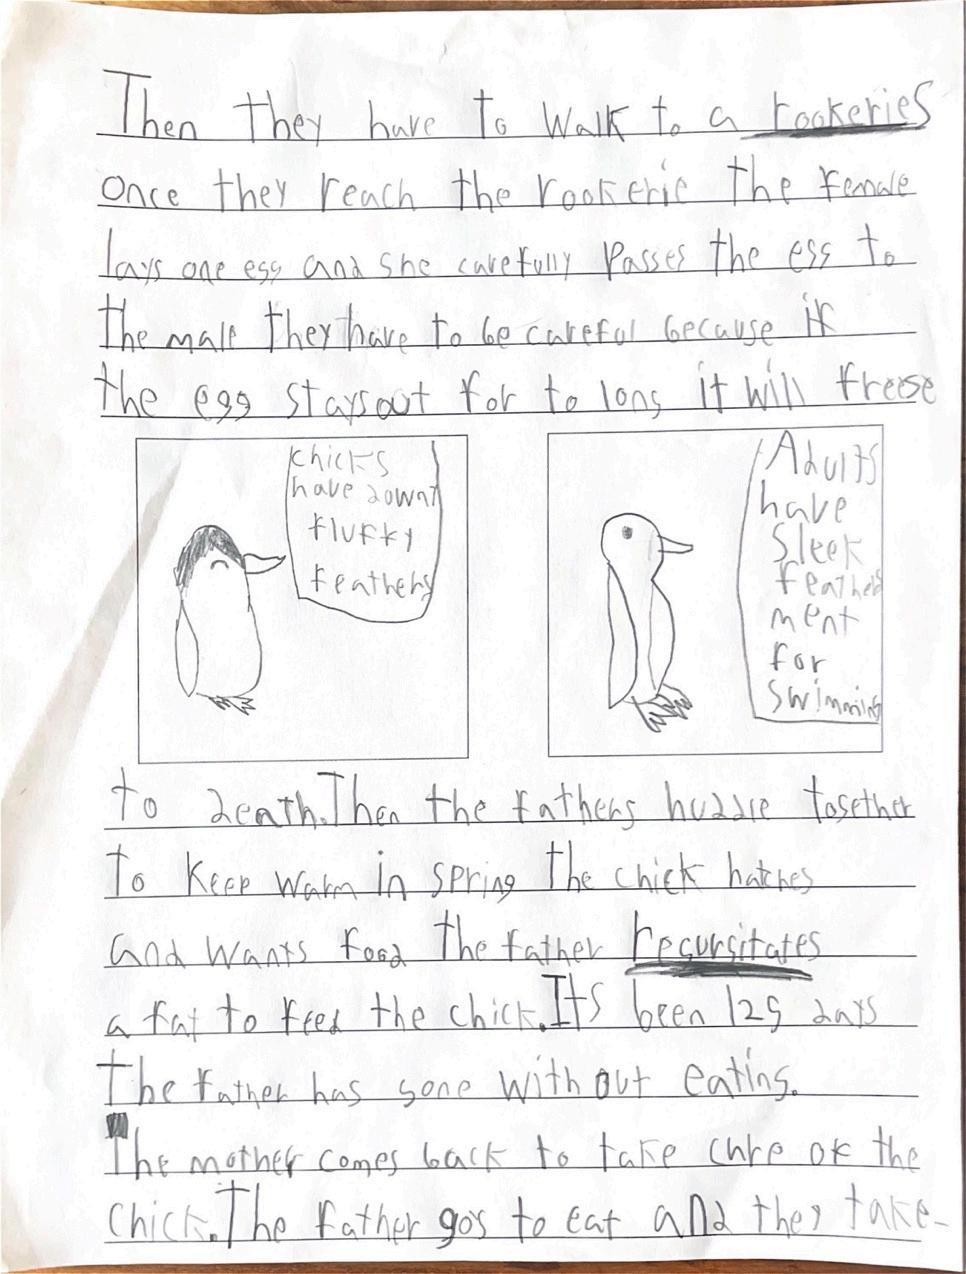 Then they have to walk to a rookeries
once they reach the rookerie the female
lays one egg and she carefully passes the egg to
the male they have to be careful because if
the egg stays out for to long it will freese
chicks
have downy
fluffy
feathers
Adults
have
sleek
feathers
ment
for
swimming
to death. Then the fathers huddle together
to keep warm in spring the chick hatches
and wants food the father regursitates
a fat to feed the chick. Its been 125 days
the father has gone with out eating.
The mother comes back to take care of the
chick. The father gos to eat and they take-